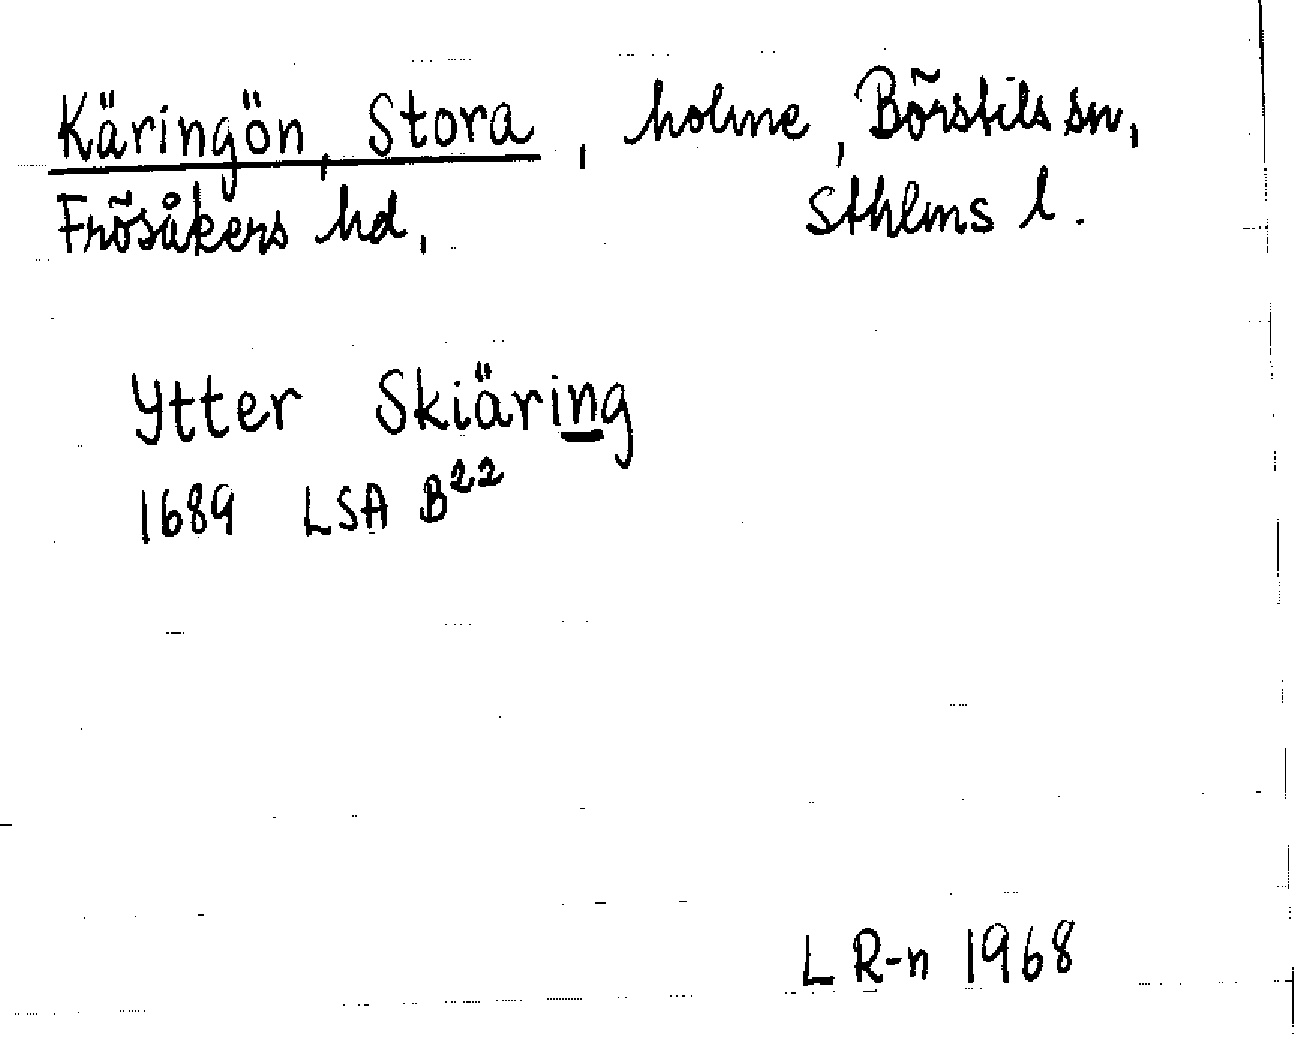 Käringön, Stora, holme, Börstils sn,
Frösåkers hd, Sthlms l.
Ytter Skiäring
1689 LSA B22
L R-n 1968